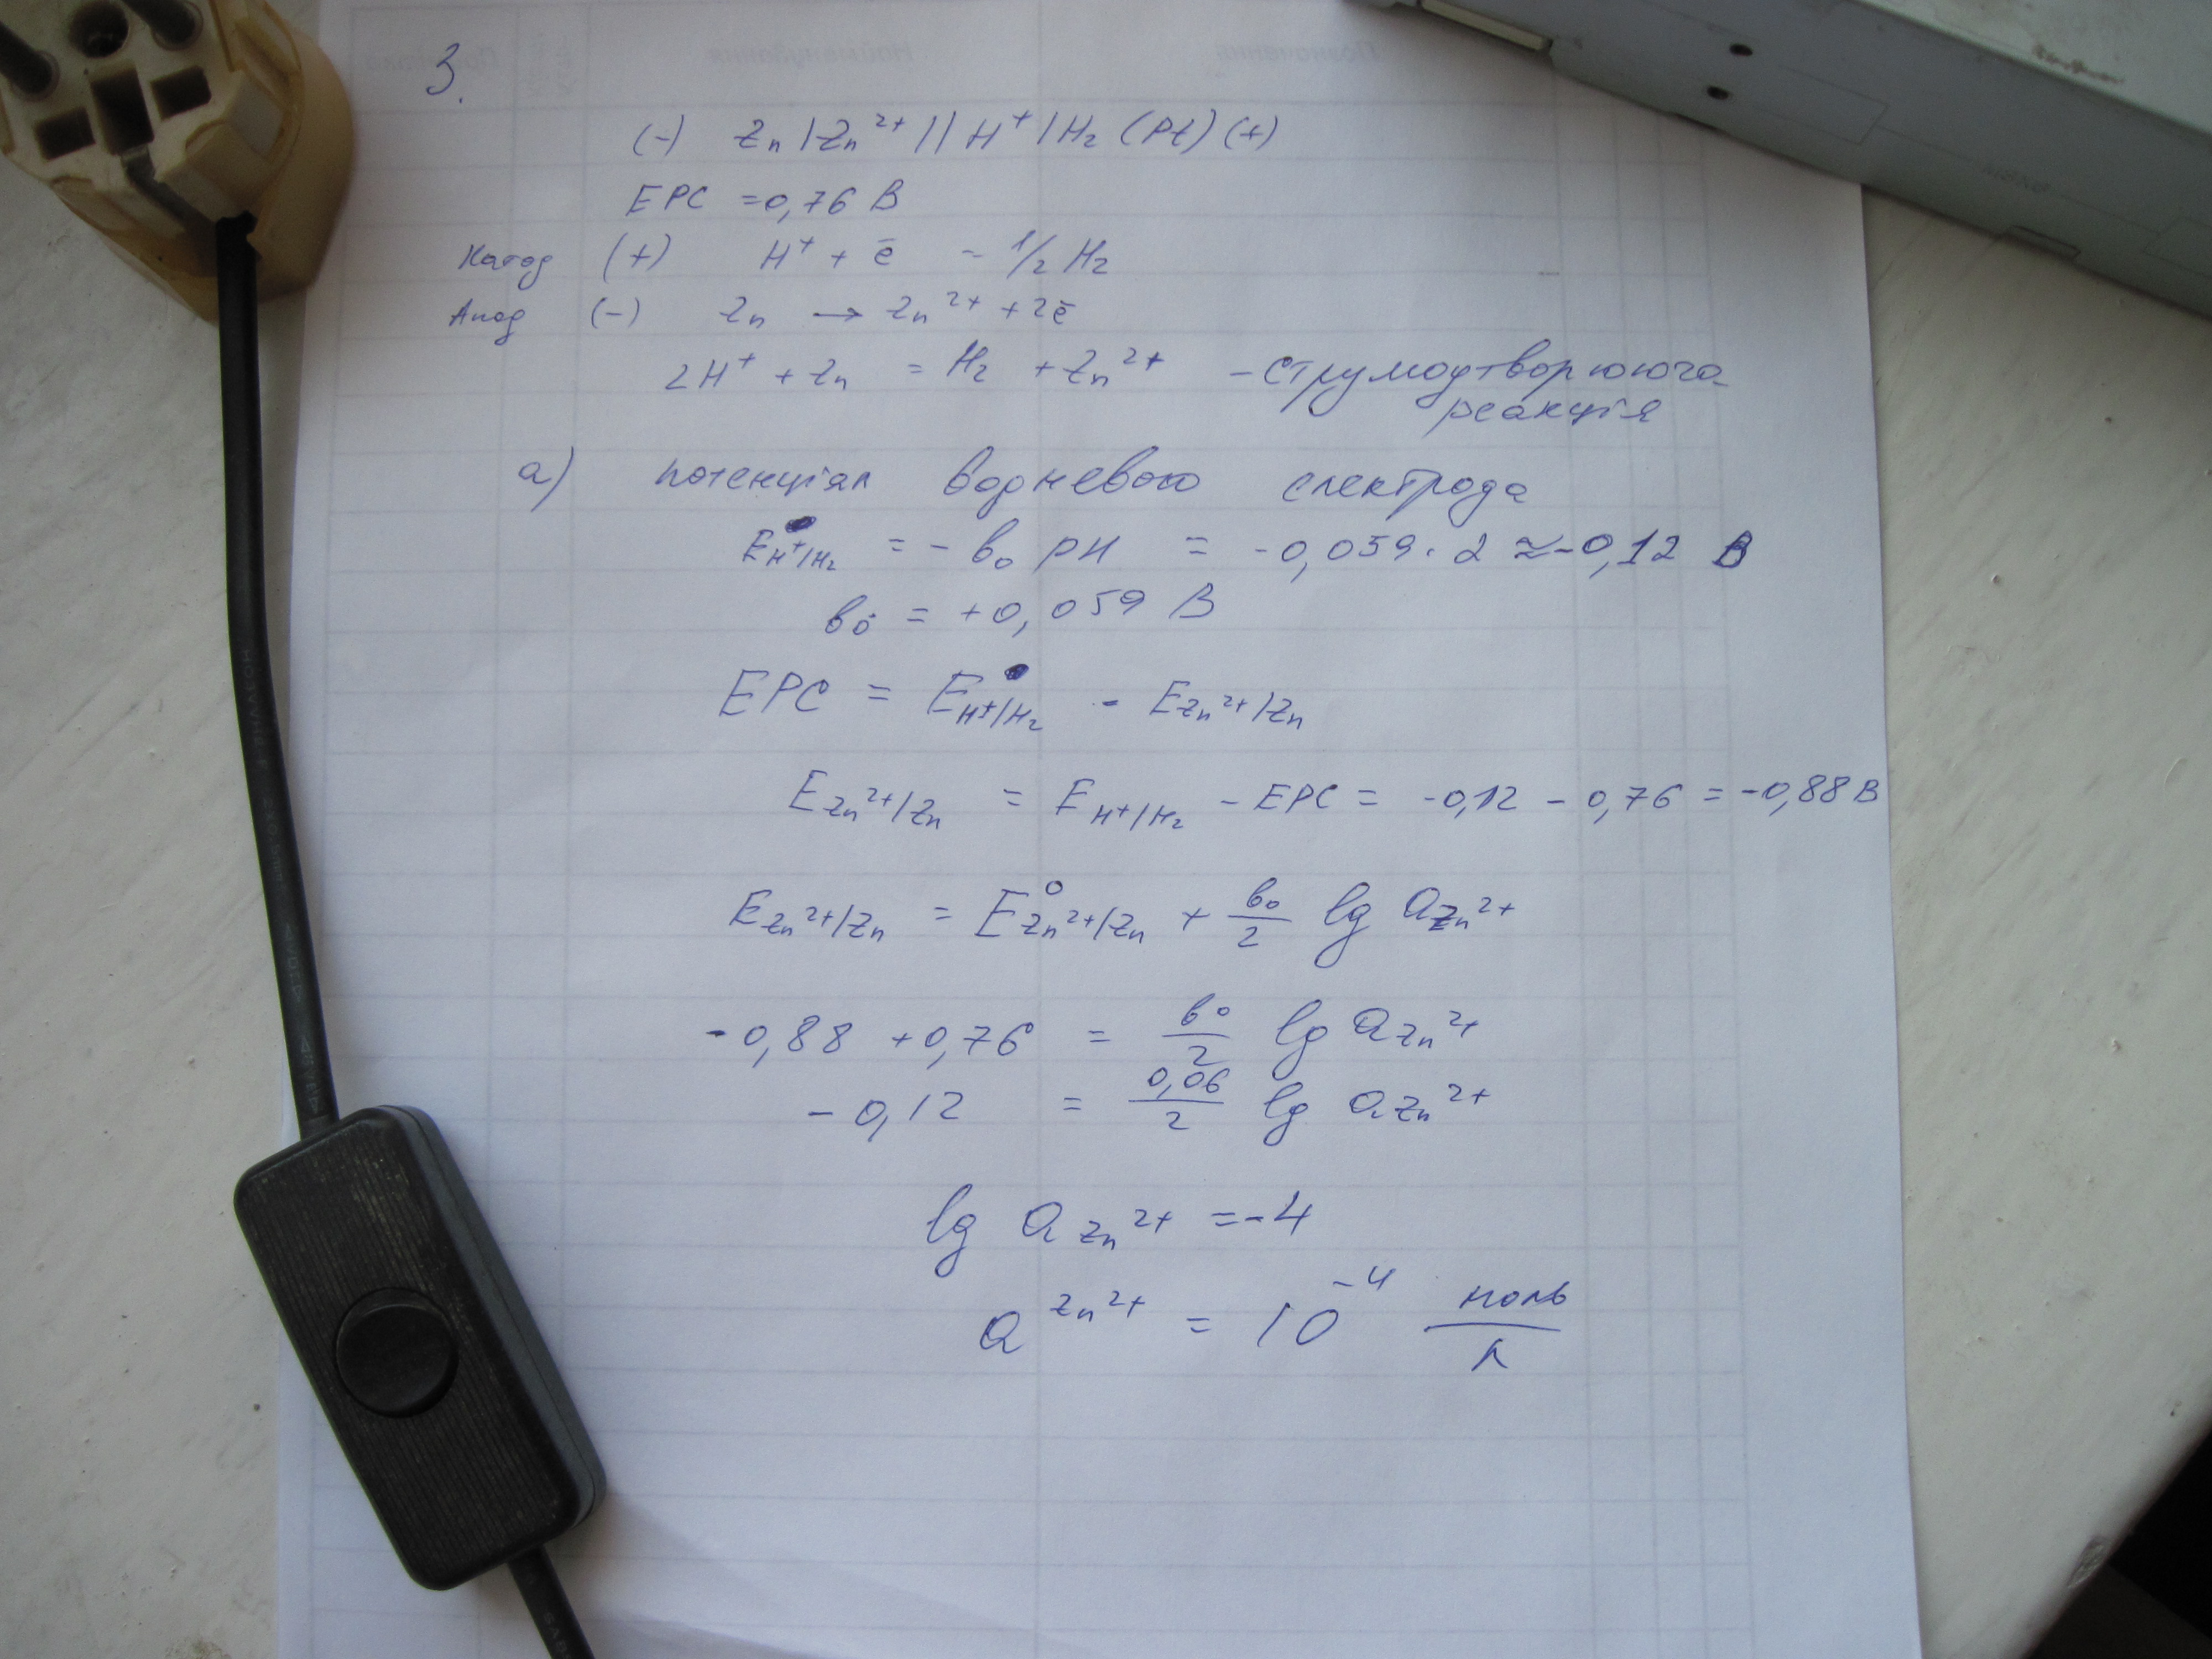 3.
(-) Zn | Zn²⁺ || H⁺ | H₂ (Pt) (+)
ЕРС = 0,76 В
Катод (+) H⁺ + ē = 1/2 H₂
Анод (-) Zn → Zn²⁺ + 2ē
2H⁺ + Zn = H₂ + Zn²⁺ - струмоутворююча
реакція
а) потенціал водневого електрода
E H⁺/H₂ = - b₀ pH = -0,059 · 2 ≈ -0,12 В
b₀ = +0,059 В
ЕРС = E H⁺/H₂ - E Zn²⁺/Zn
E Zn²⁺/Zn = E H⁺/H₂ - ЕРС = -0,12 - 0,76 = -0,88 В
E Zn²⁺/Zn = E⁰ Zn²⁺/Zn + b₀/2 lg a Zn²⁺
-0,88 + 0,76 = b₀/2 lg a Zn²⁺
-0,12 = 0,06/2 lg a Zn²⁺
lg a Zn²⁺ = -4
a Zn²⁺ = 10⁻⁴ моль/л